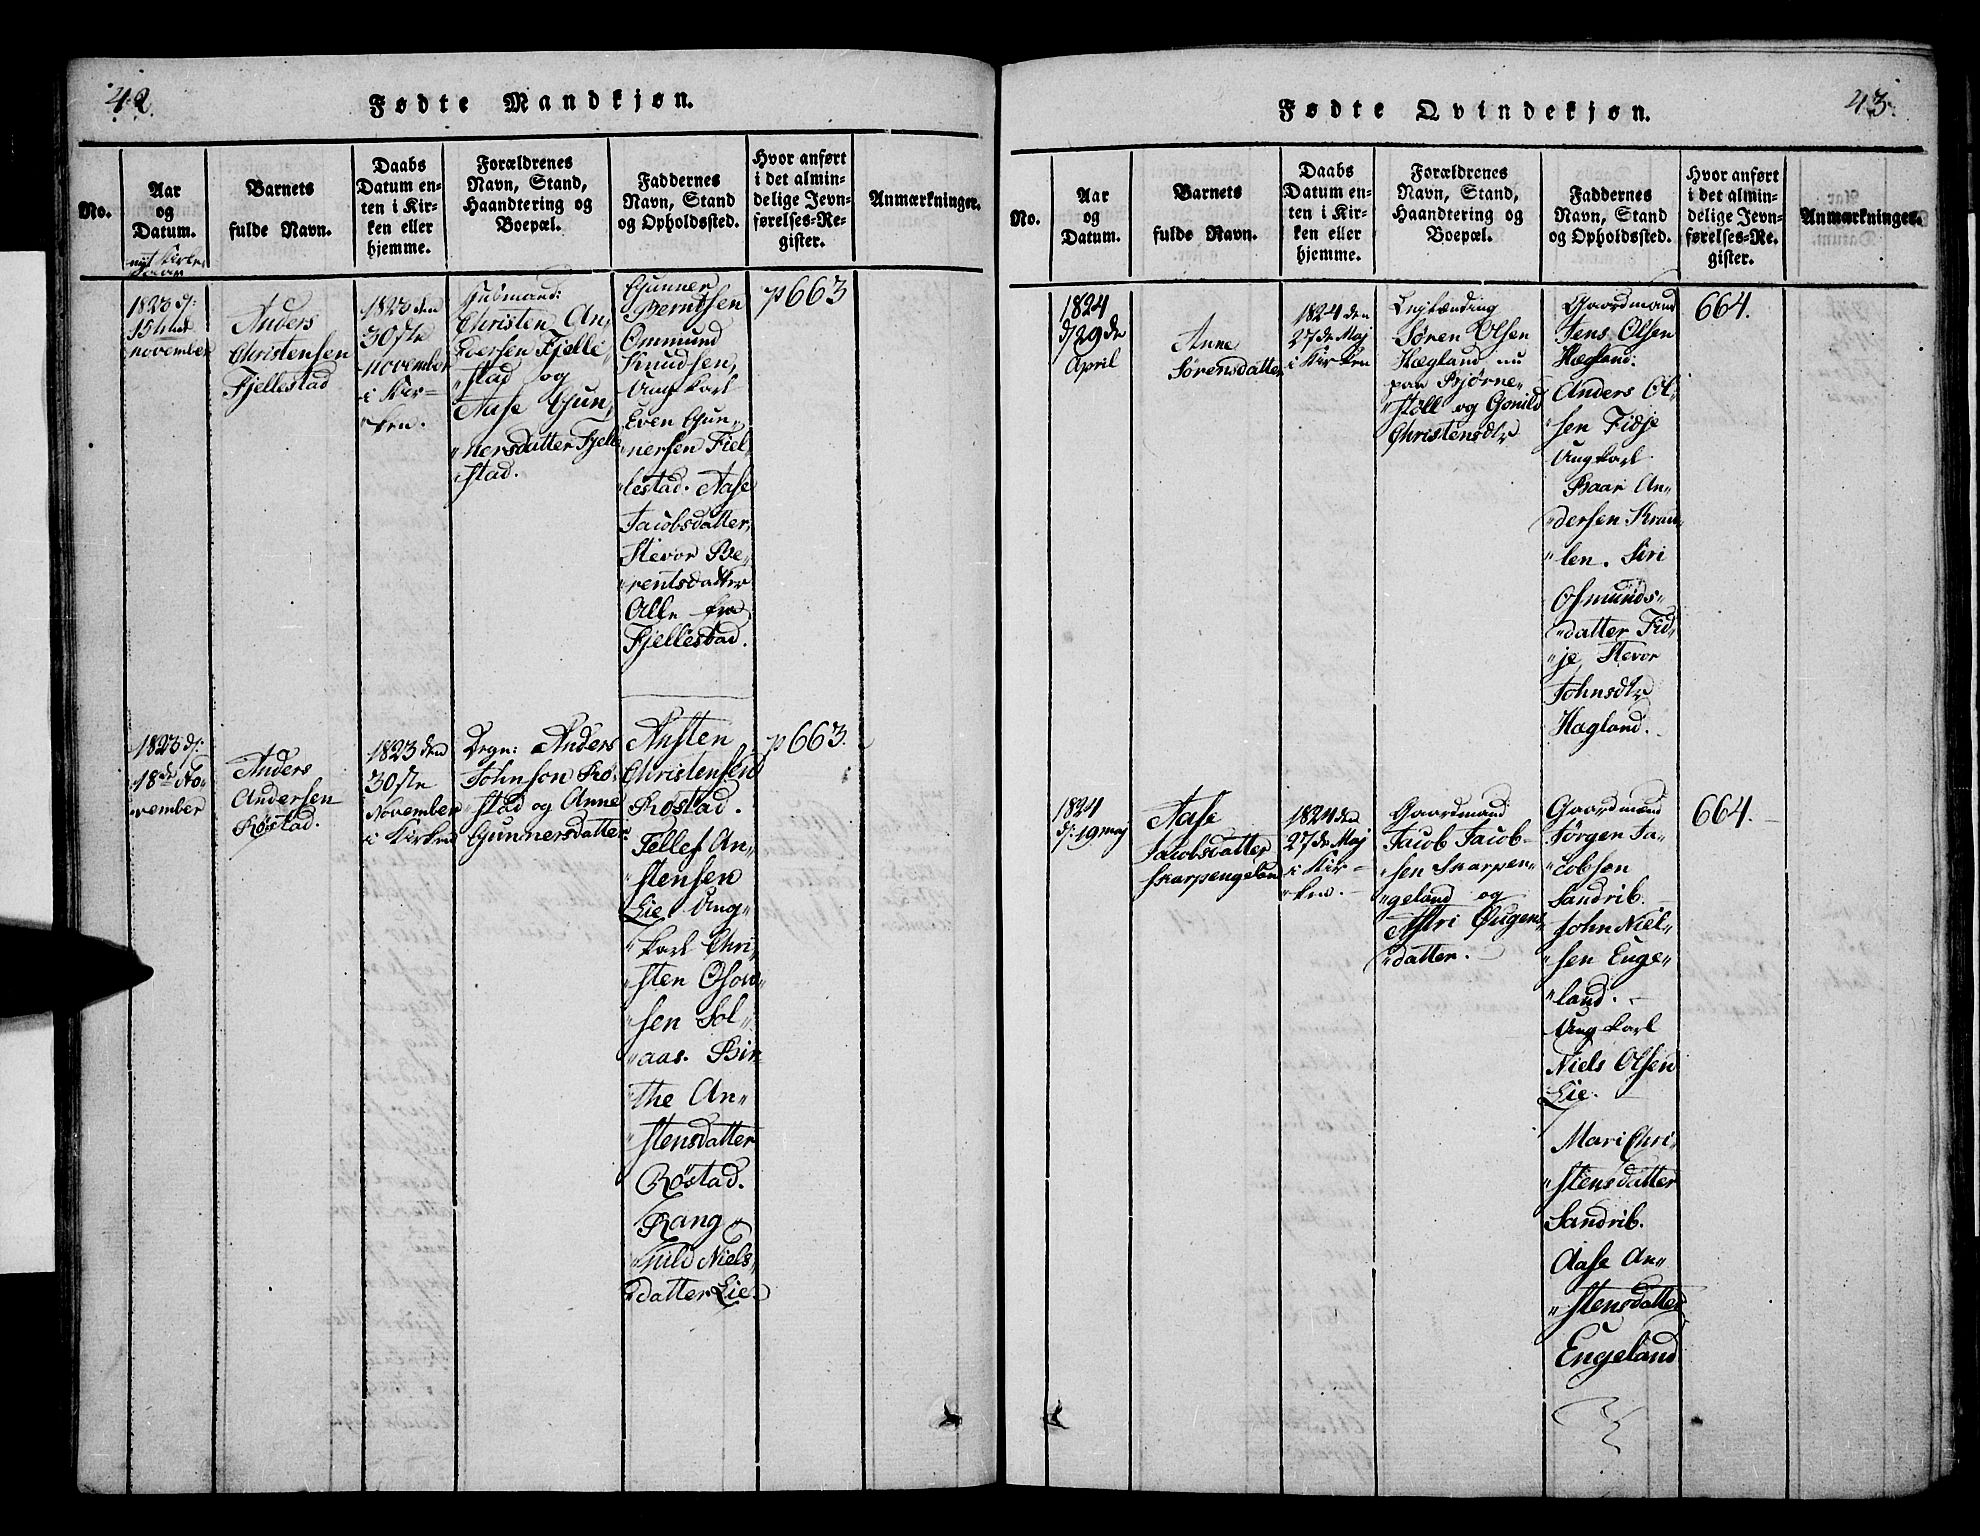 42.
Fødte Mandkjøn.
No.
Aar
og
Datum.
Barnets
fulde Navn.
Daabs
Datum en-
ten i Kir-
ken eller
hjemme.
Forældrenes
Navn, Stand,
Haandtering og
Boepæl.
Faddernes
Navn, Stand
og Opholdssted.
Hvor anført
i det almin-
delige Jevn-
førelses-Re-
gister.
Anmærkninger.
nyt Kirke
Aar
1823 d:
15tende
november
Anders
Christensen
Fjellestad
1823 den
30ste
november
i Kir-
ken.
Huusmand:
Christen An-
dersen Fjelle
stad og
Aase Gun,
nersdatter Fjelle
stad.
Gunner
Berntsen
Ommund
Knudsen,
Ungkarl
Even Gun-
nersen Fiel-
lestad. Aase
Jacobsdatter,
Stevor Be-
rentsdatter
Alle fra
Fjellestad.
p 663
1823 d:
18de No-
vember
Anders
Andersen
Røstad.
1823 den
30ste
November
i Kirken
Degn: Anders
Johnson Rø-
stad og Anne
Gunnersdatter
Ansten
Christensen
Røstad.
Tellef An-
stensen
Lie Ung-
karl Chri-
sten Osow-
sen Sol-
aas. Bir-
the An-
stensdatter
Røstad.
Rang
hild Niels
datter Lie.
p 663.
43.
Fødte Qvindekjøn.
No.
Aar
og
Datum.
Barnets
fulde Navn.
Daabs
Datum en-
ten i Kir-
ken eller
hjemme.
Forældrenes
Navn, Stand,
Haandtering og
Boepæl.
Faddernes
Navn, Stand
og Opholdssted.
Hvor anført
i det almin-
delige Jevn-
førelses-Re-
gister.
Anmærkninger.
1824
d/29de
April
Anne
Sørensdatter
1824 den
27de Maj
i Kirken
Lejlænding
Søren Olsen
Hægland nu
paa Bjørne-
støll og Gonild
Christensdtr
Gaardmand
Jens Olsen
Hægland.
Anders Ol-
sen Fidje
Ungkarl
Baar An-
dersen Kraw-
len. Siri
Osmunds-
datter Fid-
je, Stevor
Johnsdtr
Hægland.
664.
1824
d: 19 maj
Aase
Jacobsdatter
Skarpengeland
1824 den
27de Maj
i Kir-
ken.
Gaardmand
Jacob Jacob-
sen Skarpen-
geland og
Astri Øugens
datter.
Gaardmand
Jørgen Ja-
cobsen
Sandrib.
John Niel-
sen Enge-
land.
Ungkarl
Niels Olsen
Lie.
Mari Chri-
stensdatter
Sandrib.
Aase An-
stensdatter
Engeland
664.